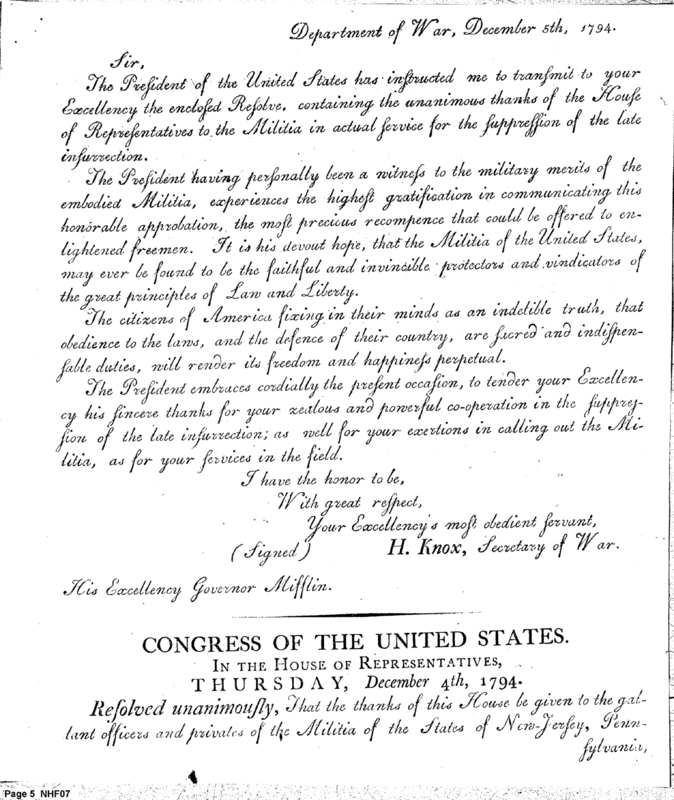 Department of War, December 5th, 1794.
Sir,
The Preſident of the United States has inſtructed me to transmit to your
Excellency the encloſed Reſolve, containing the unanimous thanks of the Houſe
of Repreſentatives to the Militia in actual ſervice for the ſuppreſſion of the late
inſurrection.
The Preſident having perſonally been a witneſs to the military merits of the
embodied Militia, experiences the higheſt gratification in communicating this
honorable approbation, the moſt precious recompence that could be offered to en-
lightened freemen. It is his devout hope, that the Militia of the United States,
may ever be found to be the faithful and invincible protectors and vindicators of
the great principles of Law and Liberty.
The citizens of America fixing in their minds as an indelible truth, that
obedience to the laws, and the defence of their country, are ſacred and indiſpen-
ſable duties, will render its freedom and happineſs perpetual.
The Preſident embraces cordially the preſent occaſion, to tender your Excellen-
cy his ſincere thanks for your zealous and powerful co-operation in the ſuppreſ-
ſion of the late inſurrection; as well for your exertions in calling out the Mi-
litia, as for your ſervices in the field.
I have the honor to be,
With great reſpect,
Your Excellency's moſt obedient ſervant,
(Signed) H. Knox, Secretary of War.
His Excellency Governor Mifflin.
CONGRESS OF THE UNITED STATES.
IN THE HOUSE OF REPRESENTATIVES,
THURSDAY, December 4th, 1794.
Reſolved unanimouſly, That the thanks of this House be given to the gal-
lant officers and privates of the Militia of the States of New-Jerſey, Penn-
ſylvania,
Page 5 NHF07